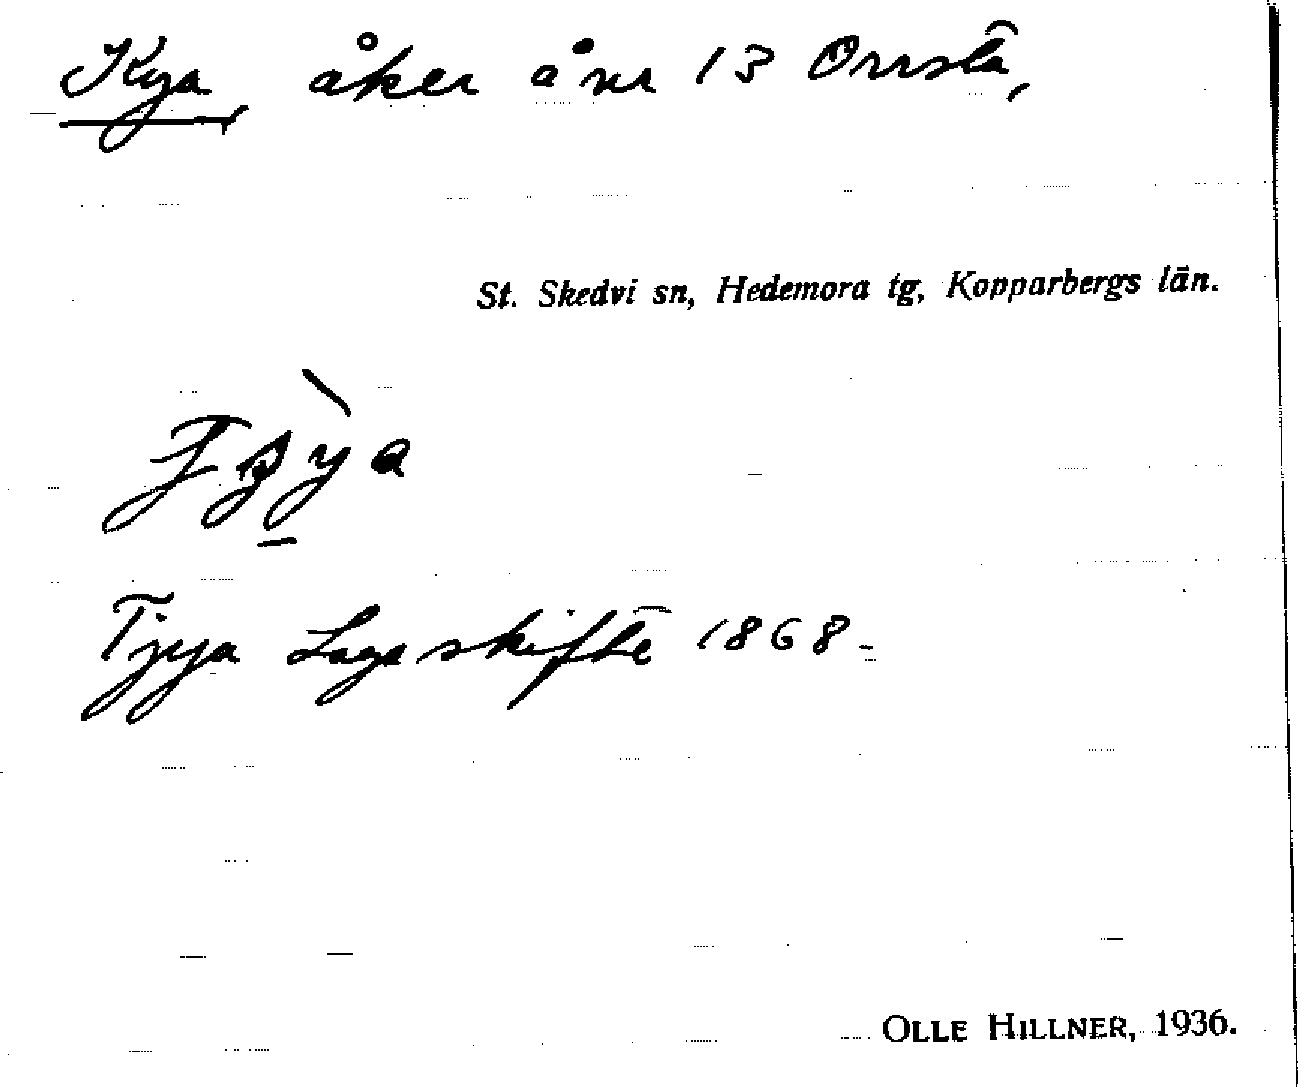 Kya, åker å nr 13 Orrsta,
St. Skedvi sn, Hedemora tg, Kopparbergs län.
Tjya Laga skifte 1868.
OLLE HILLNER, 1936.